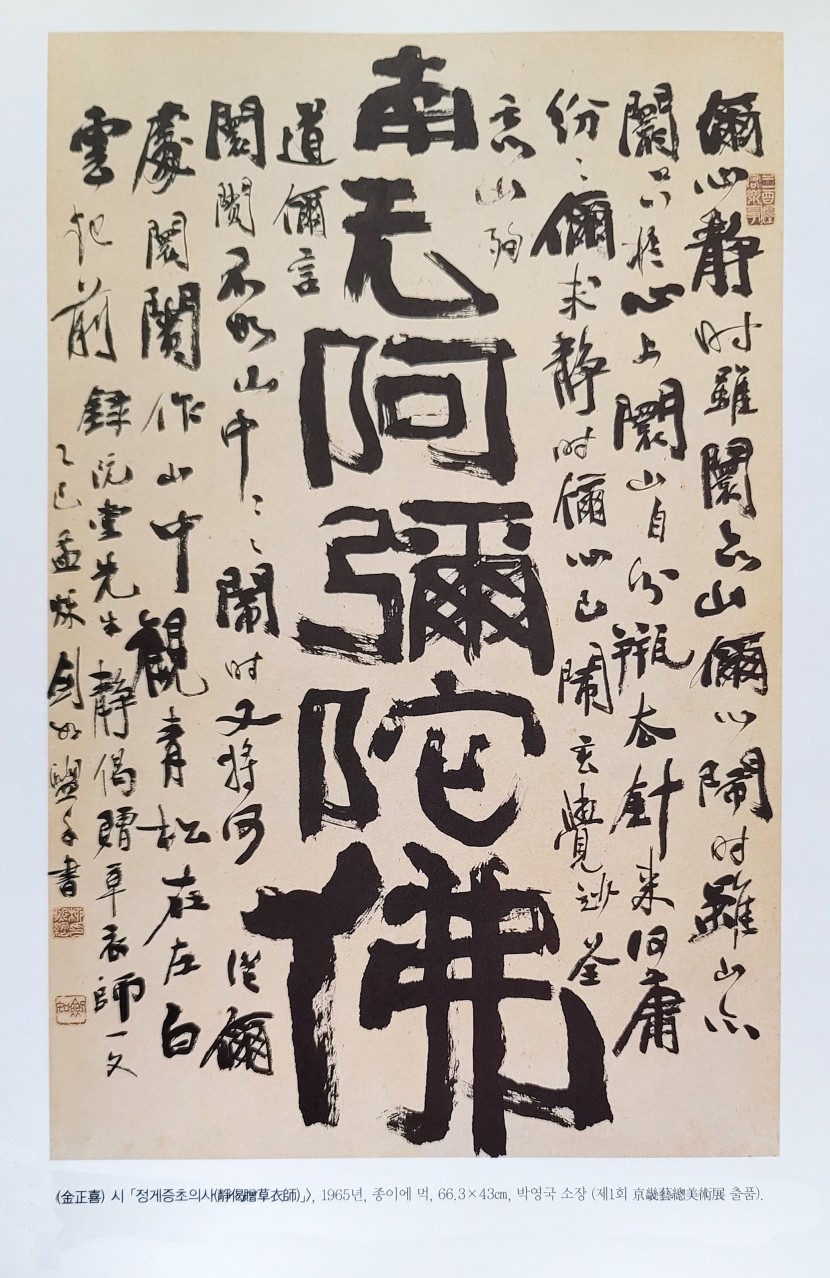 儞心靜時雖闤亦山儞心鬧時雖山亦
闤只於心上闤山自分瓶衣針來何庸
紛〻儞求靜時儞心已鬧玄覺妙筌
忘山殉
南无阿彌陀佛
道儞言
闤闠不如山中〻〻鬧時又將何從儞
處闤闠作山中觀青松在左白
雲起前 錄阮堂先生靜偈贈草衣師一文
乙巳孟秋劍如盥手書
〈金正喜〉 시 「정게증초의사(靜偈贈草衣師)」〉, 1965년, 종이에 먹, 66.3×43㎝, 박영국 소장 (제1회 京畿藝總美術展 출품).